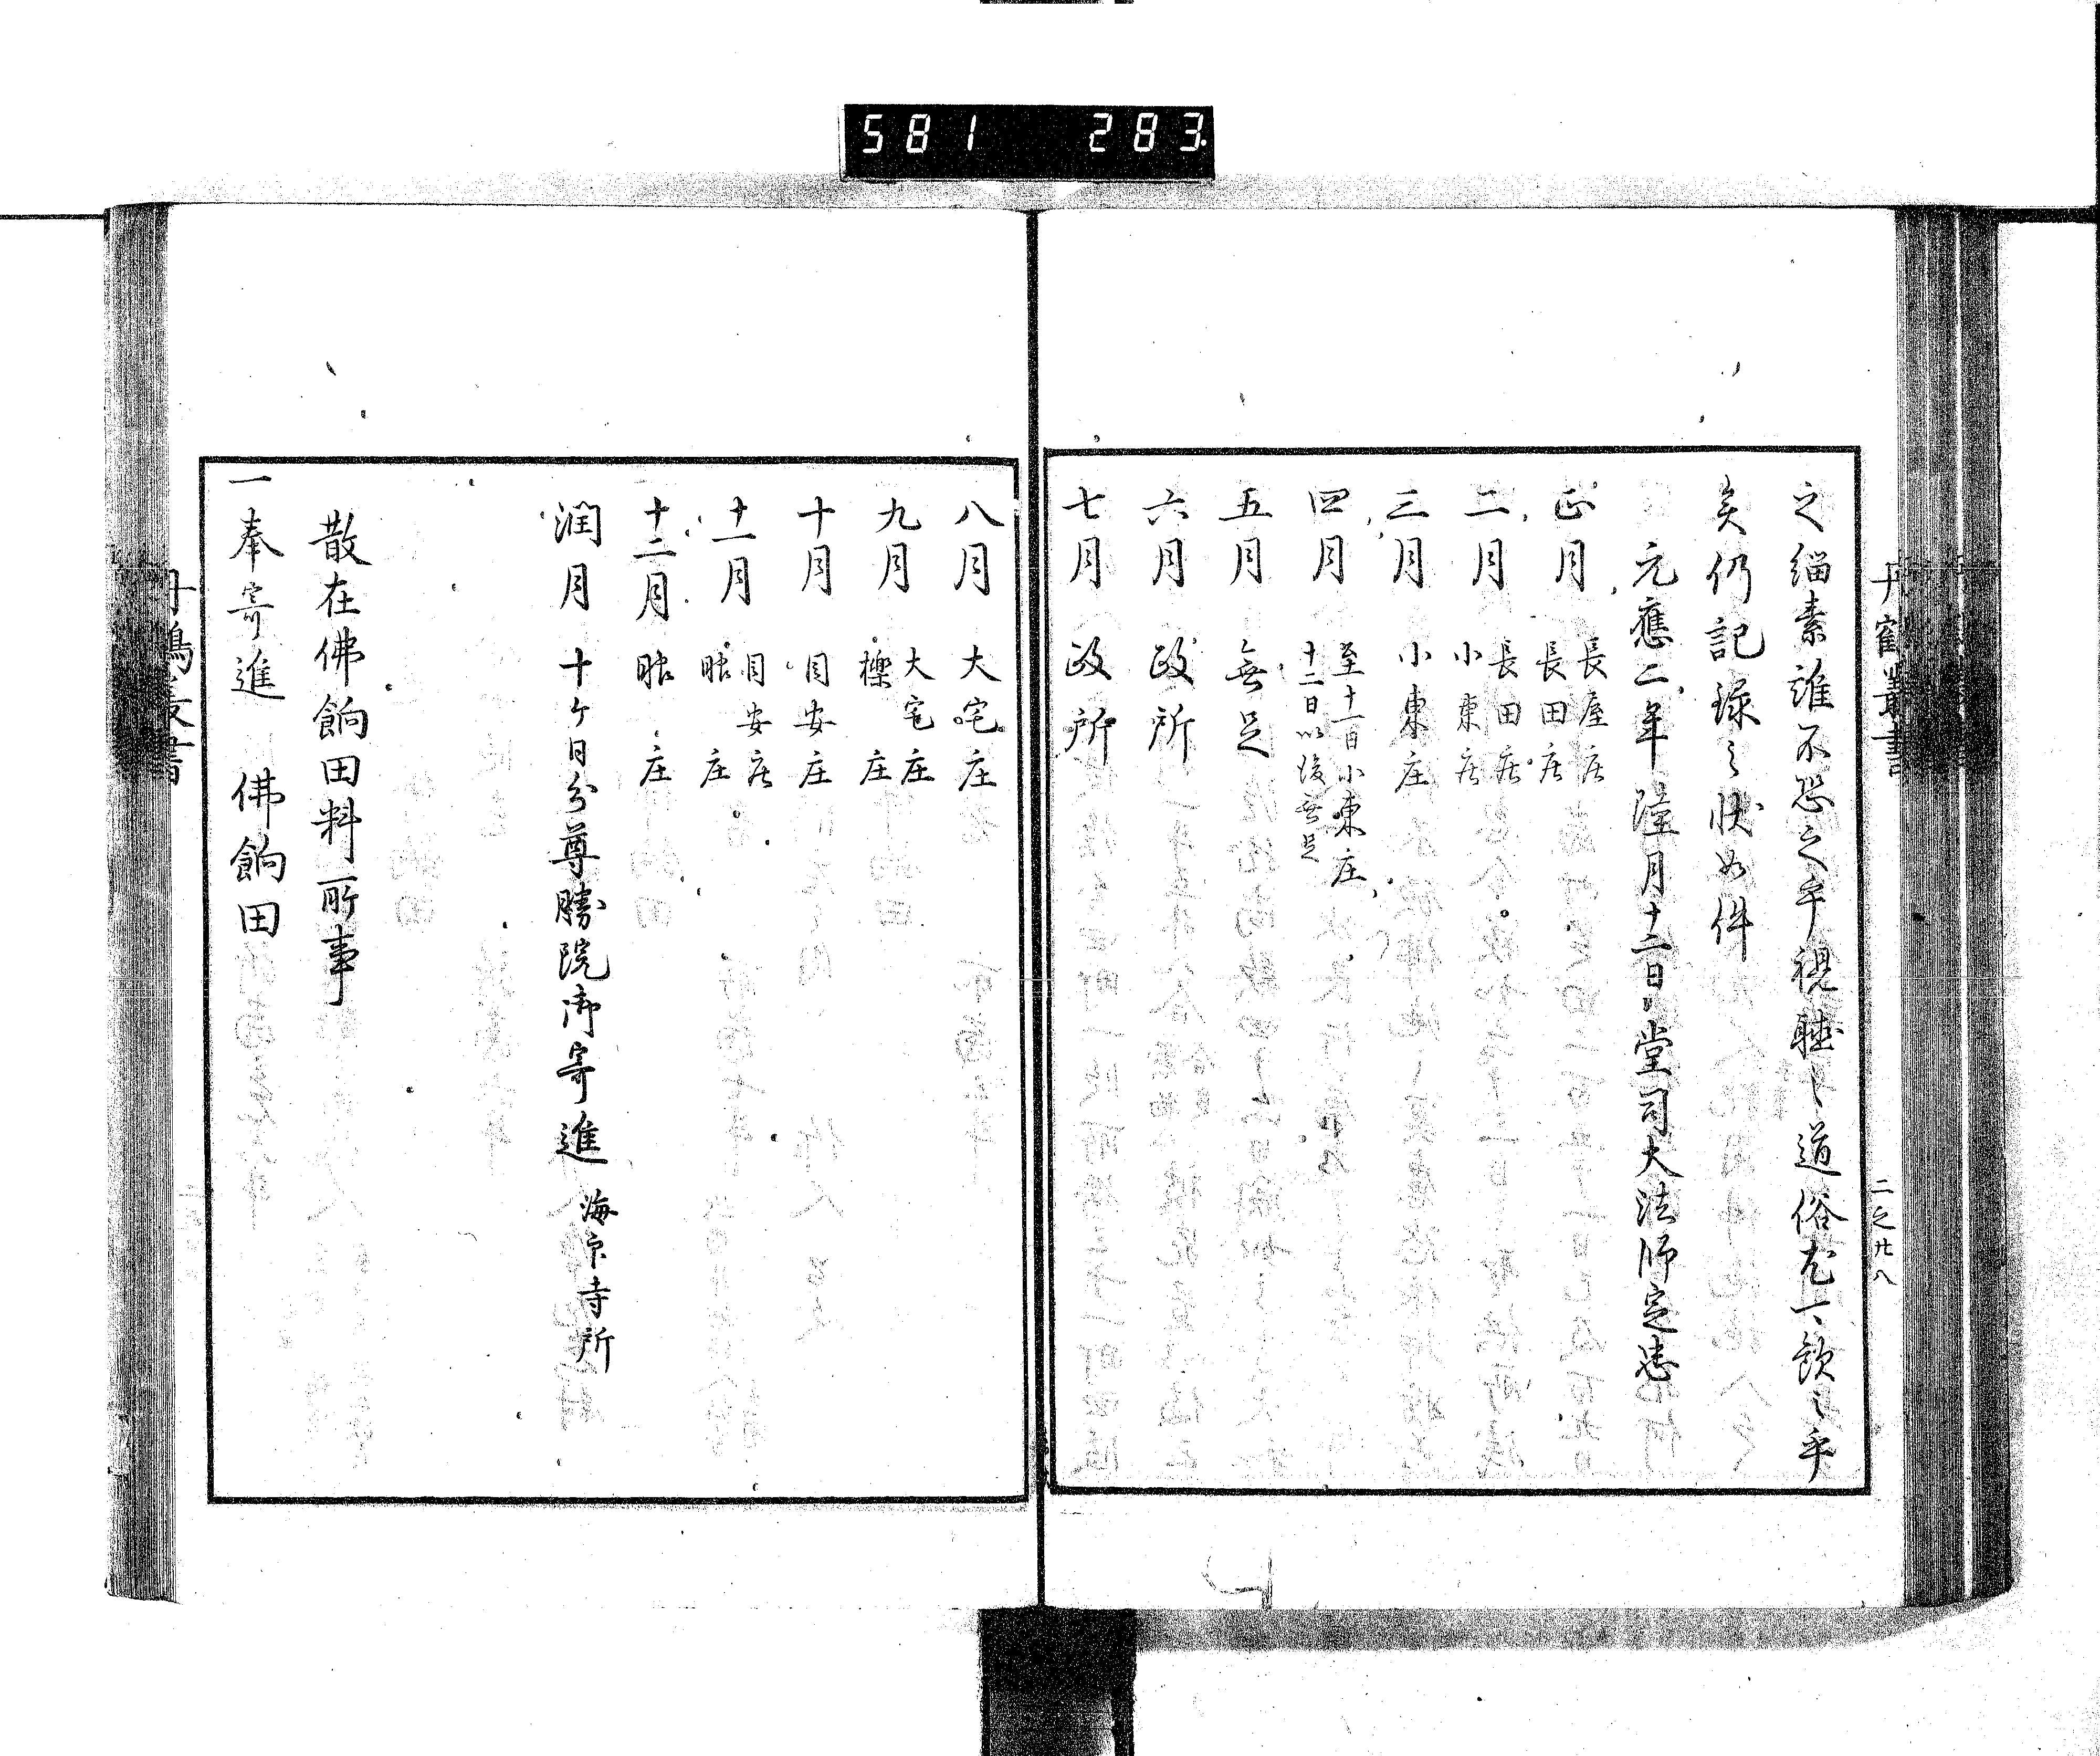 581 283
丹鶴叢書
二之廿八
之緇素誰不恐之乎視聽之道俗尤可歎之乎
矣仍記録之狀如件
元應二年陸月十二日堂司大法師定
正月 長屋庄 長田庄
二月 長田庄 小東庄
三月 小東庄
四月 至十一日小東庄 十二日以後無足
五月 無足
六月 政所
七月 政所
八月 大宅庄
九月 大宅庄 櫟庄
十月 目安庄
十一月 目安庄 庄
十二月 庄
潤月 十ケ日分尊勝院御寄進 海印寺所
散在佛餉田料所事
一奉寄進 佛餉田